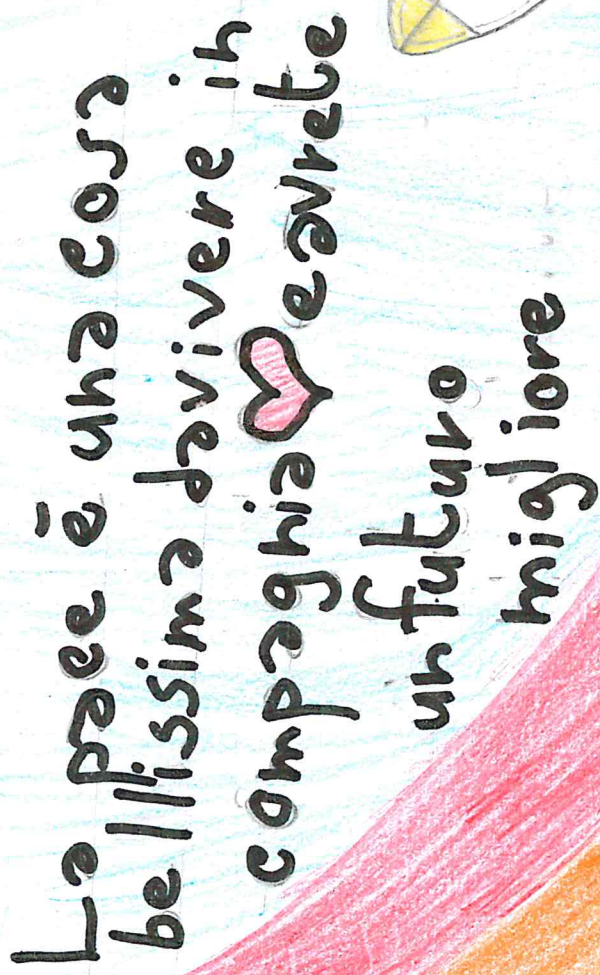 La pace ē una cosa
bellissima da vivere in
compagnia e avrete
un futuro
migliore